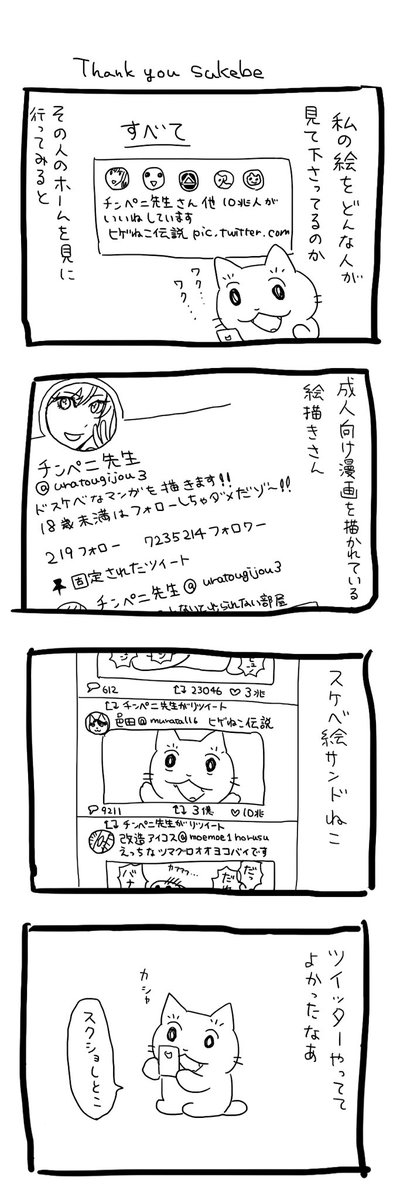 Thank you sukebe
私の絵をどんな人が
見て下さってるのか
すべて
チンペニ先生さん他10兆人が
いいねしています
ヒゲねこ伝説 pic.twitter.com
ワク…
ワク…
その人のホームを見に
行ってみると
成人向け漫画を描かれている
絵描きさん
チンペニ先生
@uratougijou3
ドスケベなマンガを描きます!!
18歳未満はフォローしちゃダメだゾ〜!!
219フォロー 7235214フォロワー
固定されたツイート
チンペニ先生@uratougijou3
しないと出られない部屋
スケベ絵サンドねこ
612 23046 3兆
チンペニ先生がリツイート
邑田@murata116 ヒゲねこ伝説
9211 3億 10兆
チンペニ先生がリツイート
改造アイコス@moemoe1harusu
えっちなツマグロオオヨコバイです
ツイッターやってて
よかったなあ
カシャ
スクショしとこ